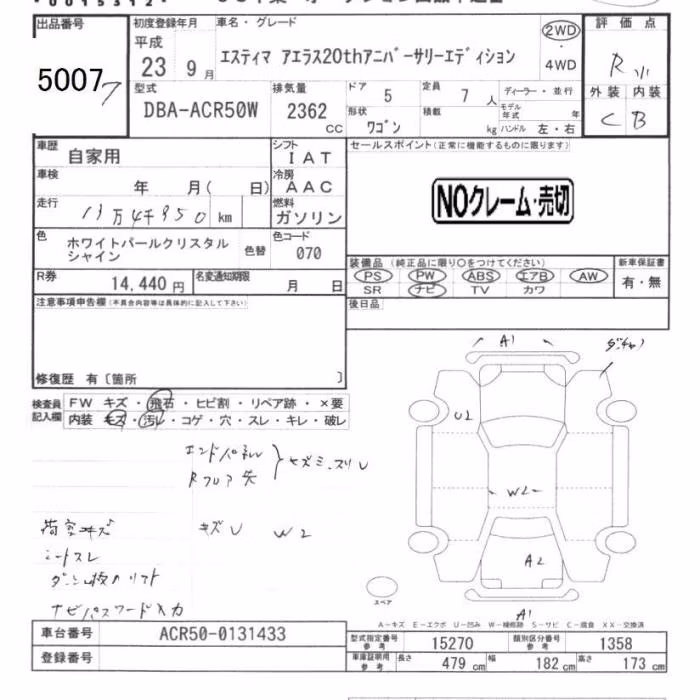 出品番号
5007
初度登録年月
平成
23 9月
車名・グレード
エスティマ アエラス20thアニバーサリーエディション
2WD
・
4WD
評価点
R
外装 内装
C B
型式
DBA-ACR50W
排気量
2362
CC
ドア 5
定員 7 人
形状
ワゴン
積載
kg
ディーラー・並行
モデル年式 年
ハンドル 左・右
車歴 自家用
シフト
IAT
車検 年 月( 日)
冷房
AAC
走行 13万4千950 km
燃料
ガソリン
色 ホワイトパールクリスタル
シャイン
色替
色コード
070
R券 14,440円
名変通知期限 月 日
セールスポイント(正常に機能するものに限ります)
NOクレーム・売切
装備品 (純正品に限り○をつけてください)
PS PW ABS エアB AW
SR ナビ TV カワ
新車保証書
有・無
後日品
注意事項申告欄(不具合内容等は具体的に記入して下さい)
修復歴 有〔箇所 〕
検査員
記入欄
FW キズ・飛石・ヒビ割・リペア跡・×要
内装 キズ・汚レ・コゲ・穴・スレ・キレ・破レ
エンドパネル
Rフロア 先
キズU W2
シートスレ
ナビパスワード入力
A1
U2
W2
A2
A1
スペア
A−キズ E−エクボ U−凹み W−補修跡 S−サビ C−腐食 XX−交換済
車台番号 ACR50-0131433
登録番号
型式指定番号
参考
15270
類別区分番号
参考
1358
車庫証明用
参考
長さ 479 cm
幅 182 cm
高さ 173 cm